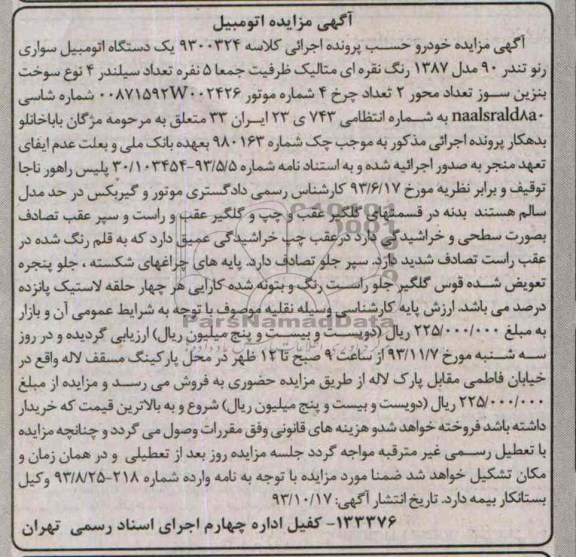 آگهی مزایده اتومبیل
آگهی مزایده خودرو حسب پرونده اجرائی کلاسه ۹۳۰۰۳۲۴ یک دستگاه اتومبیل سواری
رنو تندر ۹۰ مدل ۱۳۸۷ رنگ نقره ای متالیک ظرفیت جمعا ۵ نفره تعداد سیلندر ۴ نوع سوخت
بنزین سوز تعداد محور ۲ تعداد چرخ ۴ شماره موتور ۰۰۸۷۱۵۹۲W۰۰۲۴۲۶ شماره شاسی
naalsrald۸۰ به شماره انتظامی ۷۴۳ ی ۲۳ ایران ۳۳ متعلق به مرحومه مژگان باباخانلو
بدهکار پرونده اجرائی مذکور به موجب چک شماره ۹۸۰۱۶۳ بعهده بانک ملی و بعلت عدم ایفای
تعهد منجر به صدور اجرائیه شده و به استناد نامه شماره ۹۳/۵/۵-۳۰/۱۰۳۴۵۴ پلیس راهور ناجا
توقیف و برابر نظریه مورخ ۹۳/۶/۱۷ کارشناس رسمی دادگستری موتور و گیربکس در حد مدل
سالم هستند بدنه در قسمتهای گلگیر عقب و چپ و گلگیر عقب و راست و سپر عقب تصادف
بصورت سطحی و خراشیدگی دارد درعقب چپ خراشیدگی عمیق دارد که به قلم رنگ شده در
عقب راست تصادف شدید دارد. سپر جلو تصادف دارد. پایه های چراغهای شکسته ، جلو پنجره
تعویض شده قوس گلگیر جلو راست رنگ و بتونه شده کارآیی هر چهار حلقه لاستیک پانزده
درصد می باشد. ارزش پایه کارشناسی وسیله نقلیه موصوف با توجه به شرایط عمومی آن و بازار
به مبلغ ۲۲۵/۰۰۰/۰۰۰ ریال (دویست و بیست و پنج میلیون ریال) ارزیابی گردیده و در روز
سه شنبه مورخ ۹۳/۱۱/۷ از ساعت ۹ صبح تا ۱۲ ظهر در محل پارکینگ مسقف لاله واقع در
خیابان فاطمی مقابل پارک لاله از طریق مزایده حضوری به فروش می رسد و مزایده از مبلغ
۲۲۵/۰۰۰/۰۰۰ ریال (دویست و بیست و پنج میلیون ریال) شروع و به بالاترین قیمت که خریدار
داشته باشد فروخته خواهد شدو هزینه های قانونی وفق مقررات وصول می گردد و چنانچه مزایده
با تعطیل رسمی غیر مترقبه مواجه گردد جلسه مزایده روز بعد از تعطیلی و در همان زمان و
مکان تشکیل خواهد شد ضمنا مورد مزایده با توجه به نامه وارده شماره ۲۱۸-۹۳/۸/۲۵ وکیل
بستانکار بیمه دارد. تاریخ انتشار آگهی: ۹۳/۱۰/۱۷
۱۳۳۳۷۶- کفیل اداره چهارم اجرای اسناد رسمی تهران
ParsNamadData